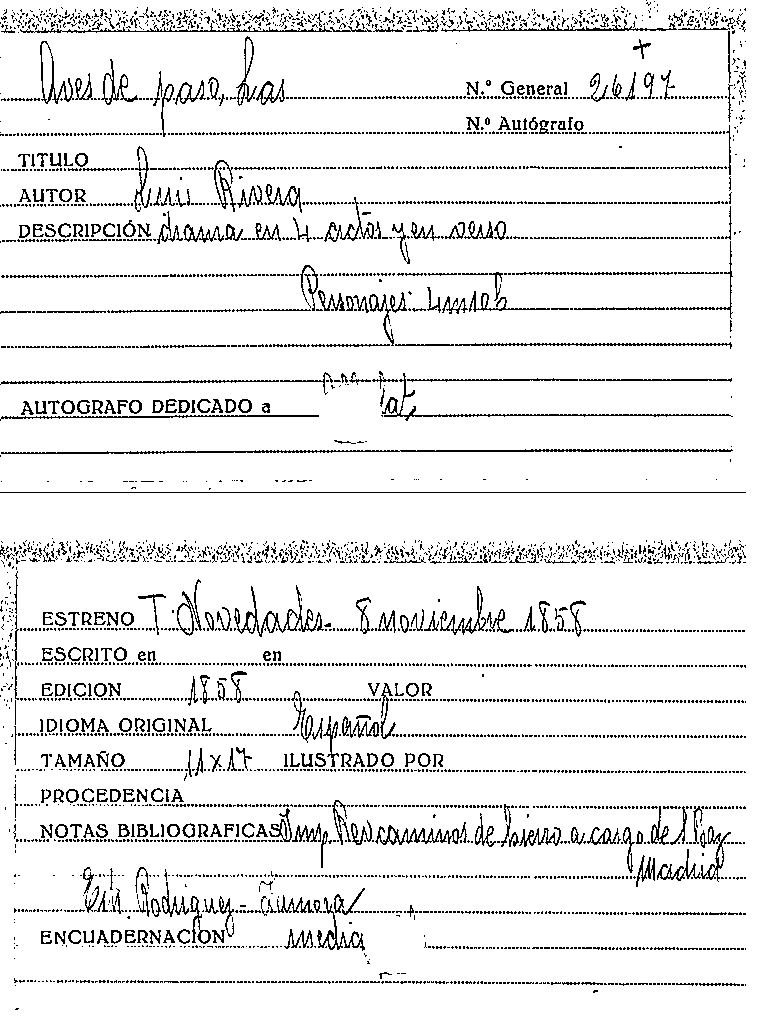 Aves de paso, Las
N.º General 26197
N.º Autógrafo
TITULO
AUTOR Luis Rivera
DESCRIPCIÓN drama en 4 actos y en verso
Personajes:
AUTOGRAFO DEDICADO a
ESTRENO T. Novedades - 8 noviembre 1858
ESCRITO en en
EDICION 1858 VALOR
IDIOMA ORIGINAL Español
TAMAÑO 11 x 17 ILUSTRADO POR
PROCEDENCIA
NOTAS BIBLIOGRAFICAS Imp. caminos de hierro a cargo de
Madrid
Rodriguez -
ENCUADERNACION media